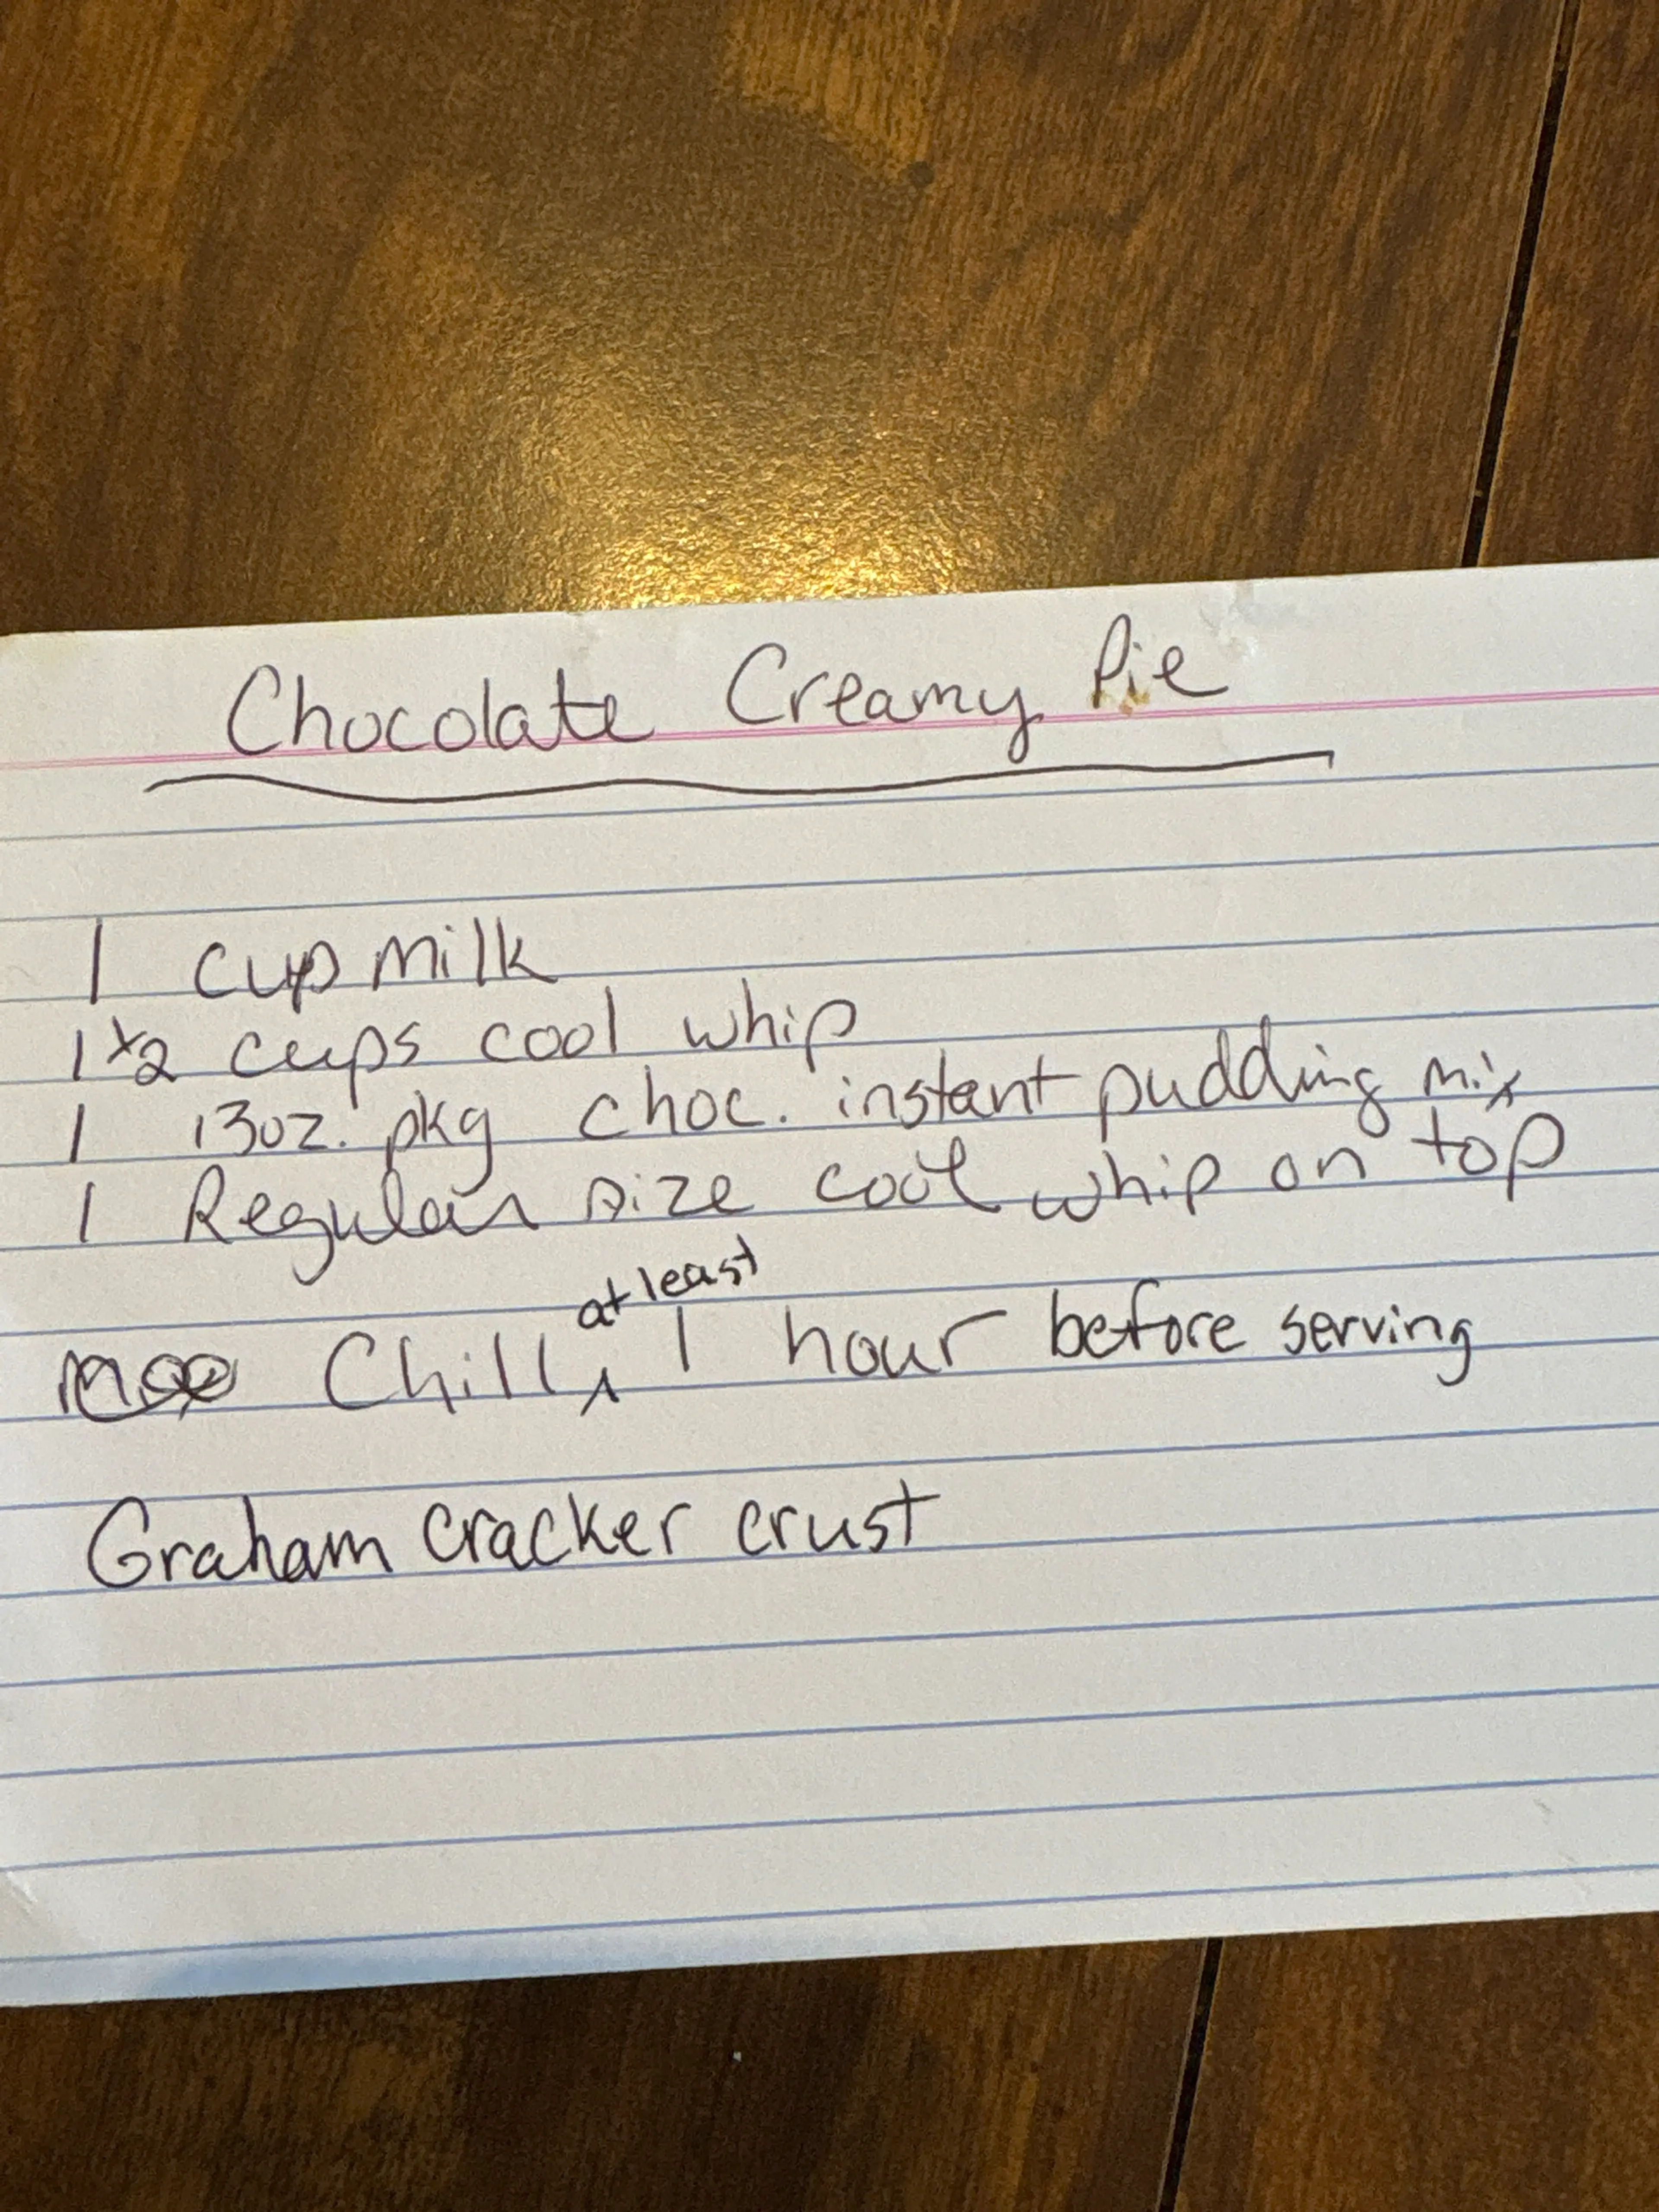 Chocolate Creamy Pie
1 cup milk
1 1/2 cups cool whip
1 13oz. pkg choc. instant pudding mix
1 Regular size cool whip on top
Chill at least 1 hour before serving
Graham cracker crust